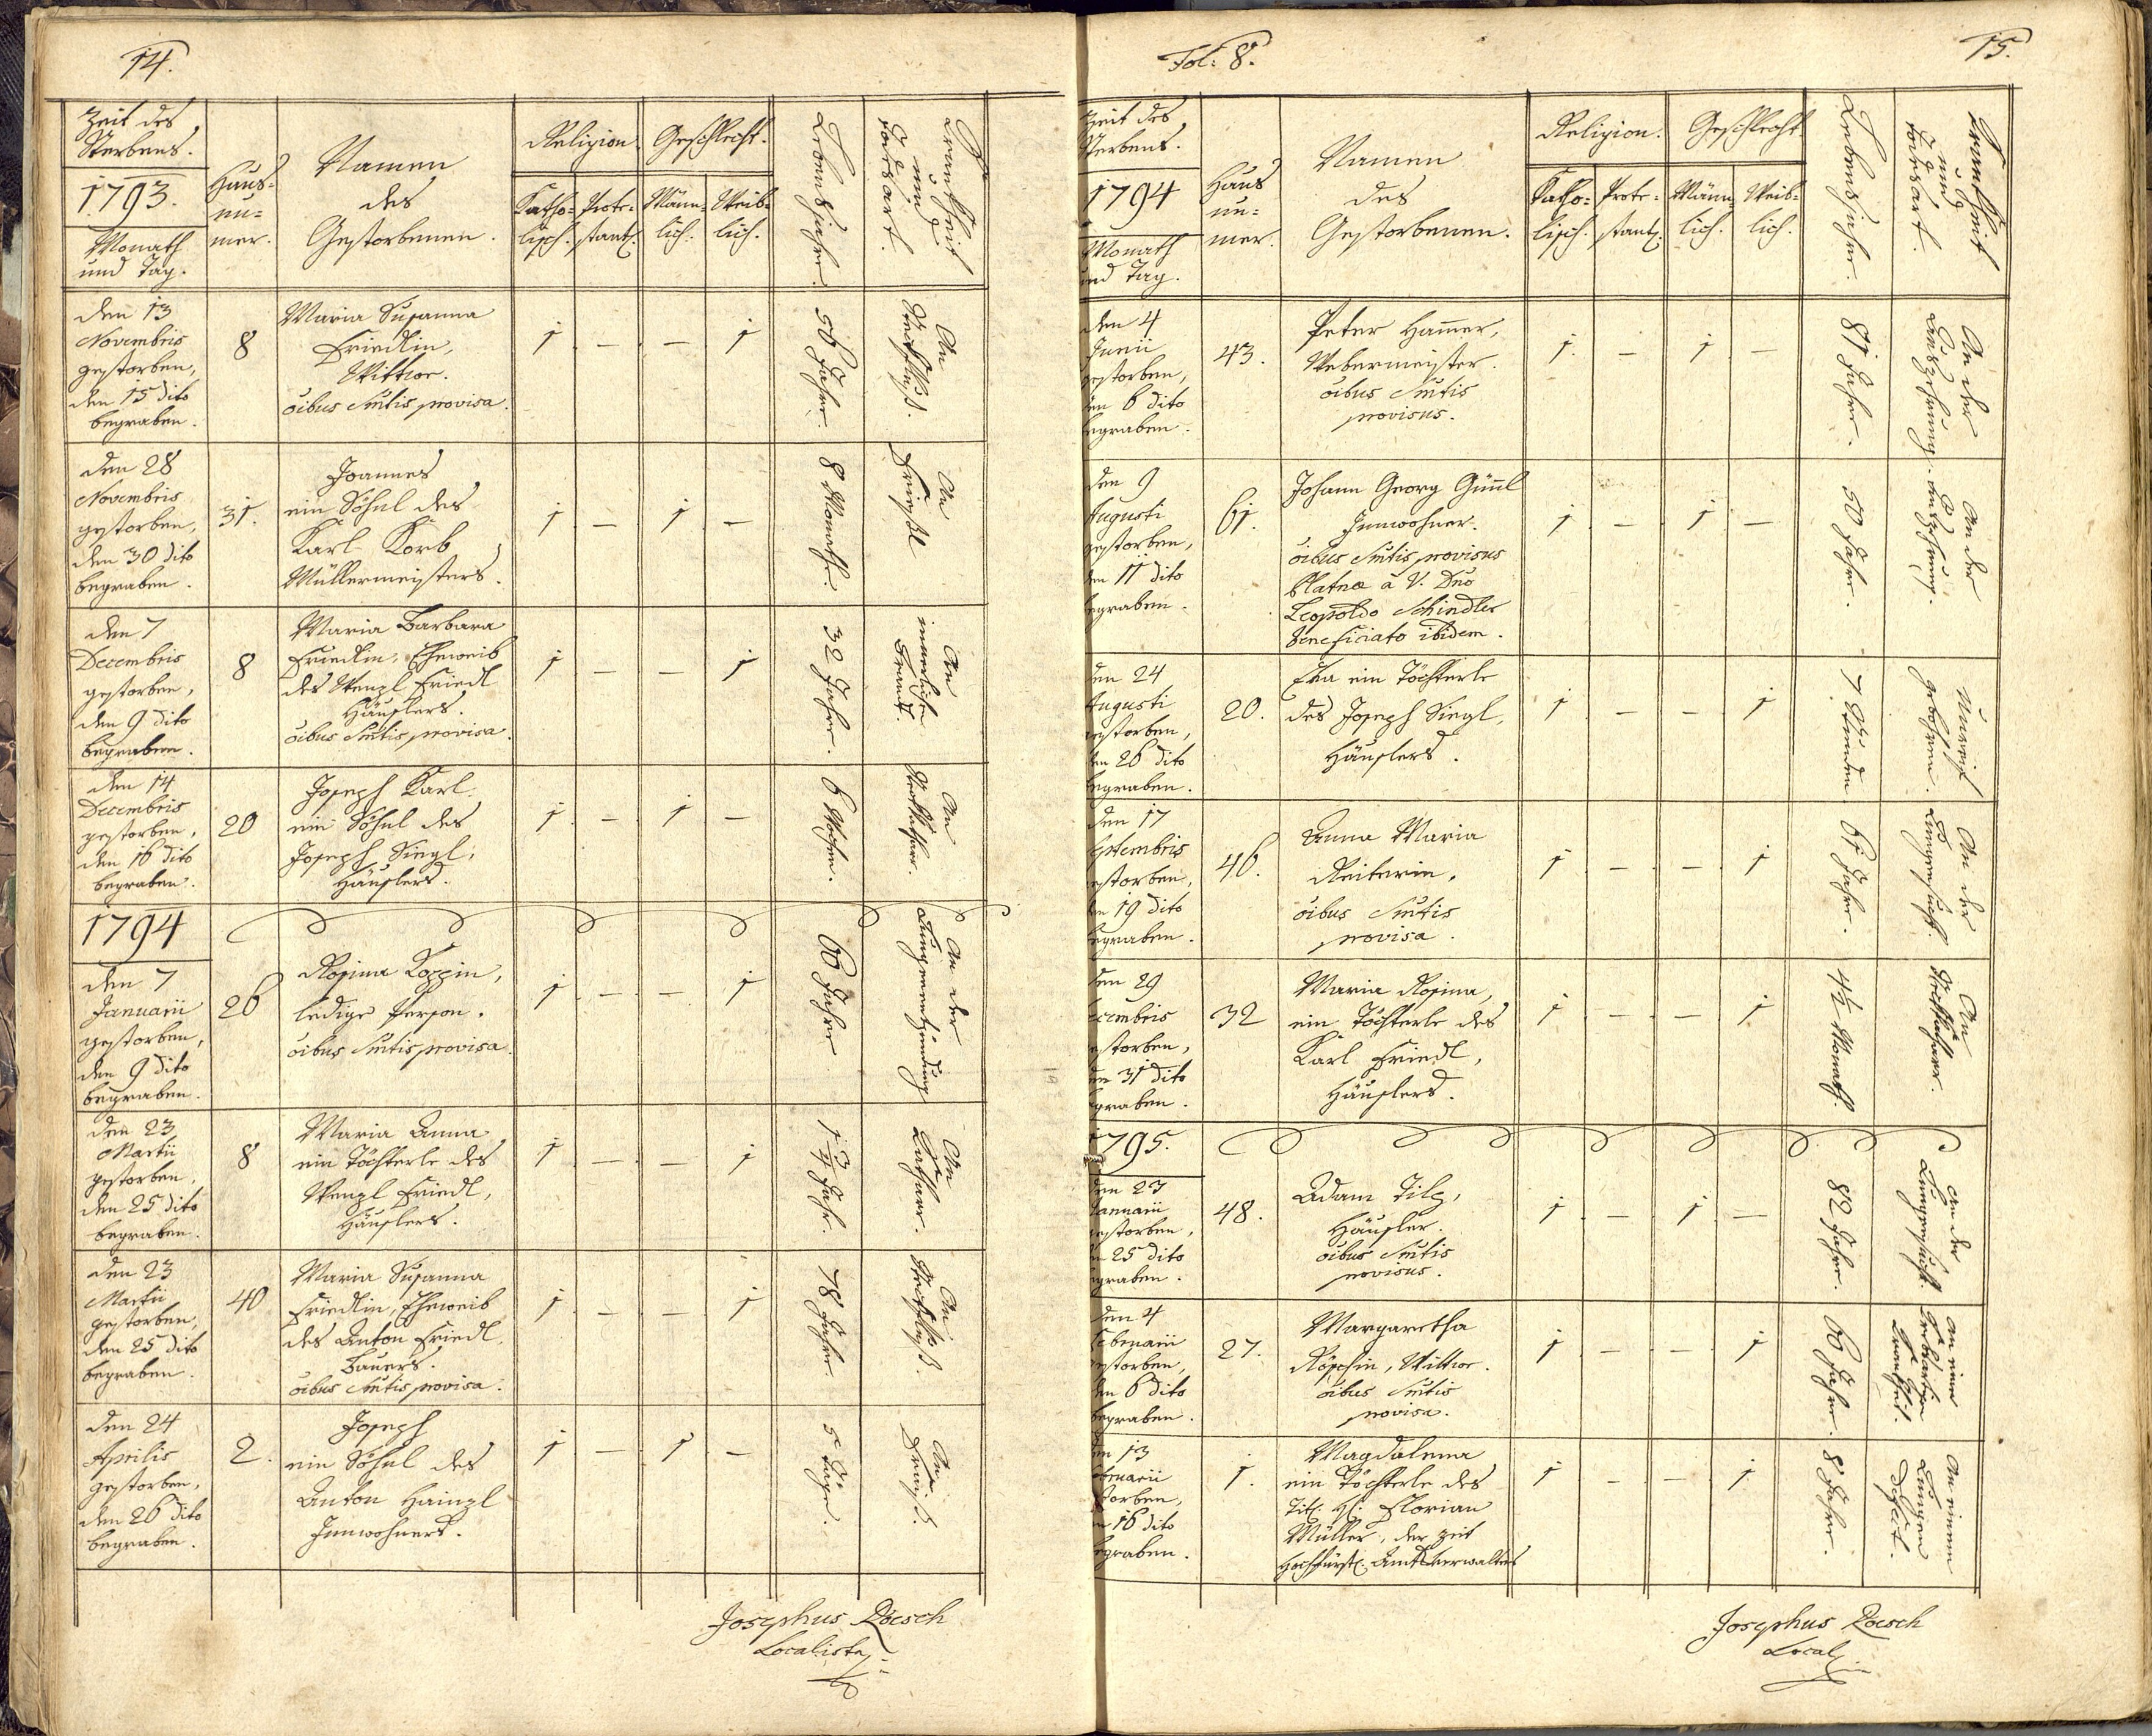 14.
Zeit des
Sterbens.
1793.
Monath
und Tag.
Haus=
nu=
mer.
Namen
des
Gestorbenen.
Religion.
Katho=
lisch.
Prote=
stant.
Geschlecht.
Männ=
lich.
Weib=
lich.
Lebensjahre.
Krankheit
und
Todesart.
den 13
Novembris
gestorben,
den 15 dito
begraben.
8
Maria Susanna
Friedlin,
Wittwe.
oibus Smtis provisa.
1 — — 1
56 Jahre.
An
Steckfluß.
den 28
Novembris
gestorben,
den 30 dito
begraben.
31.
Joannes
ein Söhnl des
Karl Korb
Müllermeisters.
1 — 1 —
8 Monath.
An
den 7
Decembris
gestorben,
den 9 dito
begraben.
8
Maria Barbara
Friedlin, Eheweib
des Wenzl Friedl
Häuslers.
oibus Smtis provisa.
1 — — 1
32 Jahre.
An
innerlichen
Brand.
den 14
Decembris
gestorben,
den 16 dito
begraben.
20
Joseph Karl.
ein Söhnl des
Joseph Siegl,
Häuslers.
1 — 1 —
6 Wochen.
An
Steckkathar.
1794
den 7
Januarii
gestorben,
den 9 dito
begraben.
26
Rosina Koppin,
ledige Person.
oibus Smtis provisa.
1 — — 1
66 Jahre
An der
Lungenentzündung
den 23
Martii
gestorben,
den 25 dito
begraben.
8
Maria Anna
ein Töchterle des
Wenzl Friedl,
Häuslers.
1 — — 1
1 3/4 Jahr.
An
Kathar.
den 23
Martii
gestorben,
den 25 dito
begraben.
40
Maria Susanna
Friedlin, Eheweib
des Anton Friedl.
Bauers.
oibus Smtis provisa.
1 — — 1
78 Jahre
An
Steckfluß.
den 24
Aprilis
gestorben,
den 26 dito
begraben.
2.
Joseph
ein Söhnl des
Anton Hainzl
Innwohners.
1 — 1 —
5 Täge.
An
Josephus Roesch
Localista
Fol: 8.
15.
Zeit des
Sterbens.
1794
Monath
und Tag.
Haus
nu=
mer.
Namen
des
Gestorbenen.
Religion.
Katho=
lisch.
Prote=
stant.
Geschlecht
Männ=
lich.
Weib=
lich.
Lebensjahre.
Krankheit
und
Todesart.
den 4
Junii
gestorben,
den 6 dito
begraben.
43.
Peter Hamer,
Webermeister.
oibus Smtis
provisus.
1. — 1 —
81 Jahre.
An der
Auszehrung.
den 9
Augusti
gestorben,
den 11 dito
begraben.
61.
Johann Georg Günl
Innwohner.
oibus Smtis provisus
Platnæ à V. Dno
Leopoldo Schindler
Beneficiato ibidem.
1 — 1 —
50 Jahre.
An der
den 24
Augusti
gestorben,
den 26 dito
begraben.
20.
Eva ein Töchterle
des Joseph Siegl,
Häuslers.
1 — — 1
7 Stunden.
Unreif
gebohren.
den 17
Septembris
gestorben,
den 19 dito
begraben.
46.
Anna Maria
Reiterin.
oibus Smtis
provisa.
1 — — 1
61 Jahre.
An der
Lungensucht.
den 29
Decembris
gestorben,
den 31 dito
begraben.
32
Maria Rosina,
ein Töchterle des
Karl Friedl,
Häuslers.
1 — — 1
4 1/2 Monath.
An
Steckkathar
1795.
den 23
Januarii
gestorben,
den 25 dito
begraben.
48.
Adam Tilp,
Häusler.
oibus Smtis
provisus.
1 — 1 —
82 Jahre.
An der
Lungensucht.
den 4
Februarii
gestorben,
den 6 dito
begraben.
27.
Margaretha
Wittwe.
oibus Smtis
provisa.
1 — — 1
66 Jahre.
An einer
Krankheit.
den 13
Februarii
gestorben,
den 16 dito
begraben.
1.
Magdalena
ein Töchterle des
Tit: H: Florian
Müller, der Zeit
hochfürstl. Amtsverwalters
1 — — 1
8 Jahre.
An einem
Lungen
Defect.
Josephus Roesch
Local